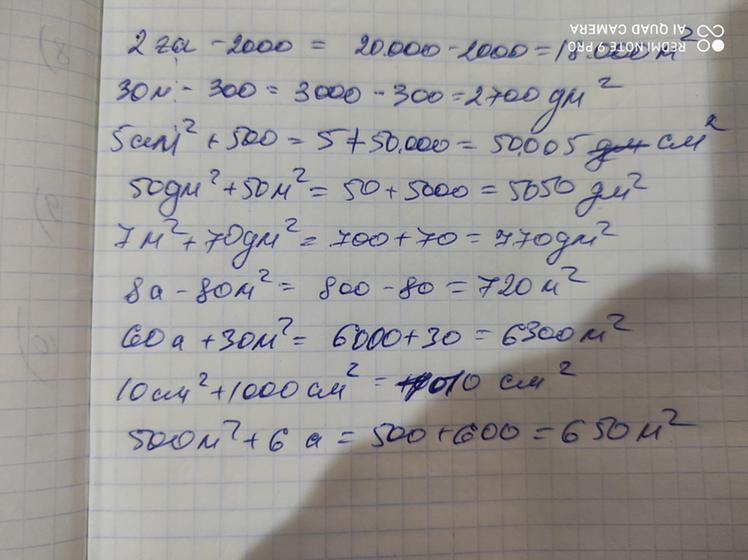 REDMI NOTE 9 PRO
AI QUAD CAMERA
2 га - 2000 = 20.000 - 2000 = 18.000 м²
30м - 300 = 3000 - 300 = 2700 дм²
5см² + 500 = 5 + 50.000 = 50.005 см²
50дм² + 50м² = 50 + 5000 = 5050 дм²
7м² + 70дм² = 700 + 70 = 770дм²
8а - 80м² = 800 - 80 = 720 м²
60а + 30м² = 6000 + 30 = 6300м²
10см² + 1000см² = 1010 см²
500м² + 6 а = 500 + 600 = 650м²